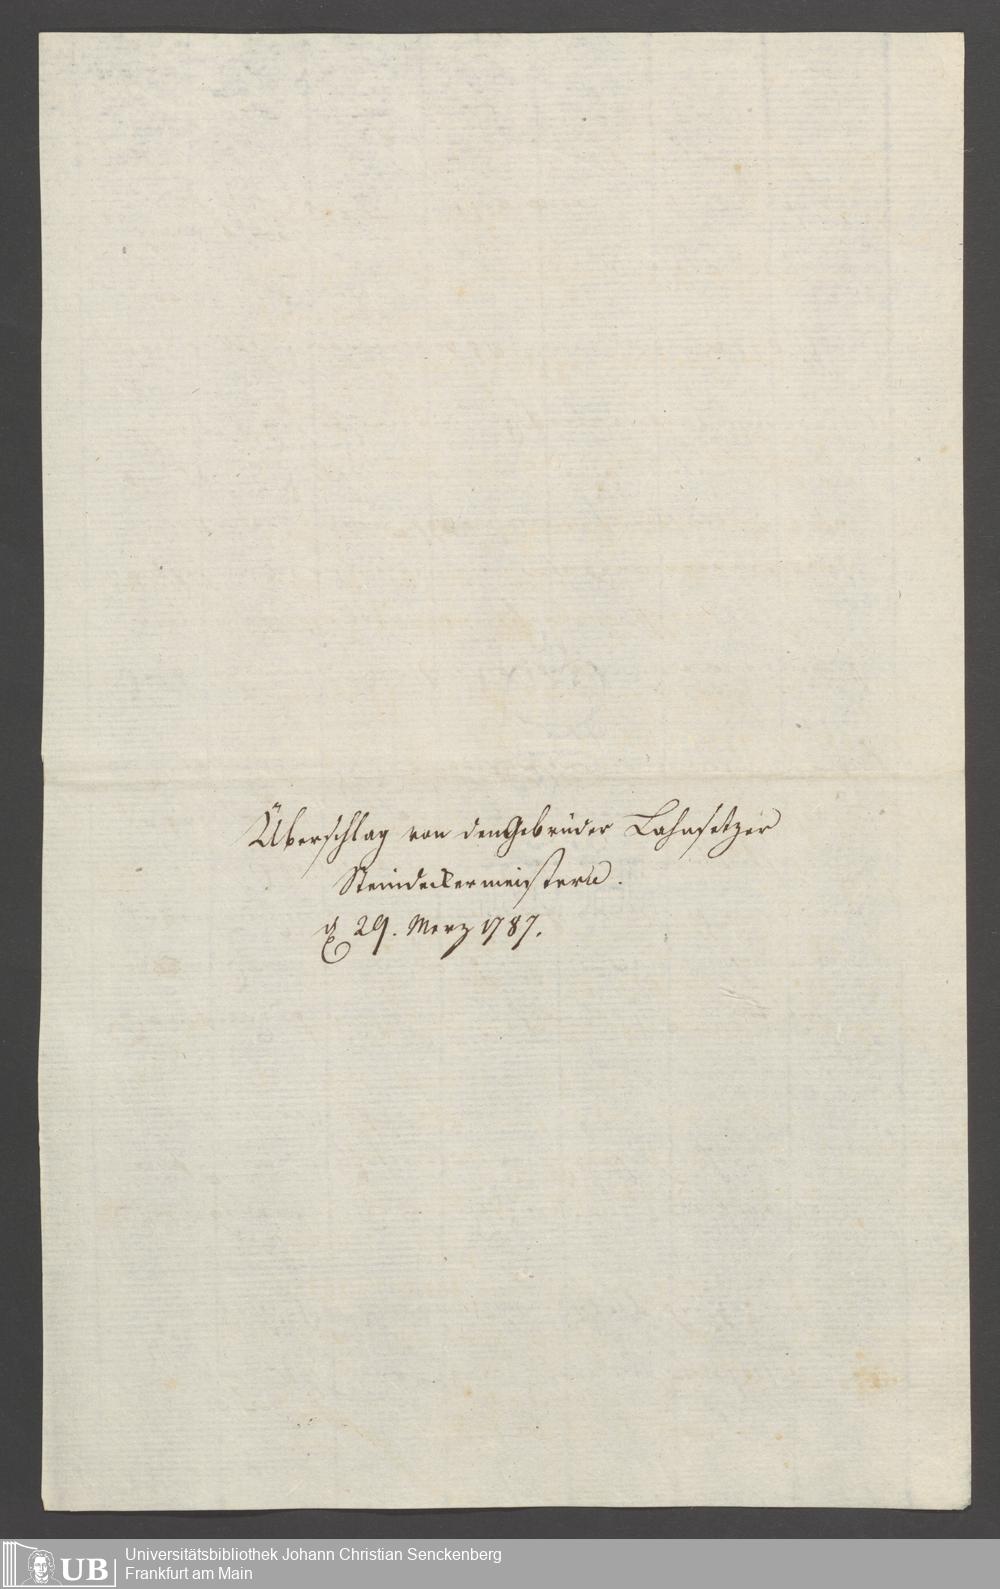 Überschlag von den Gebrüder Lahnsetzer
Steindeckermeistern.
d 29. Merz 1787.
UB
Universitätsbibliothek Johann Christian Senckenberg
Frankfurt am Main